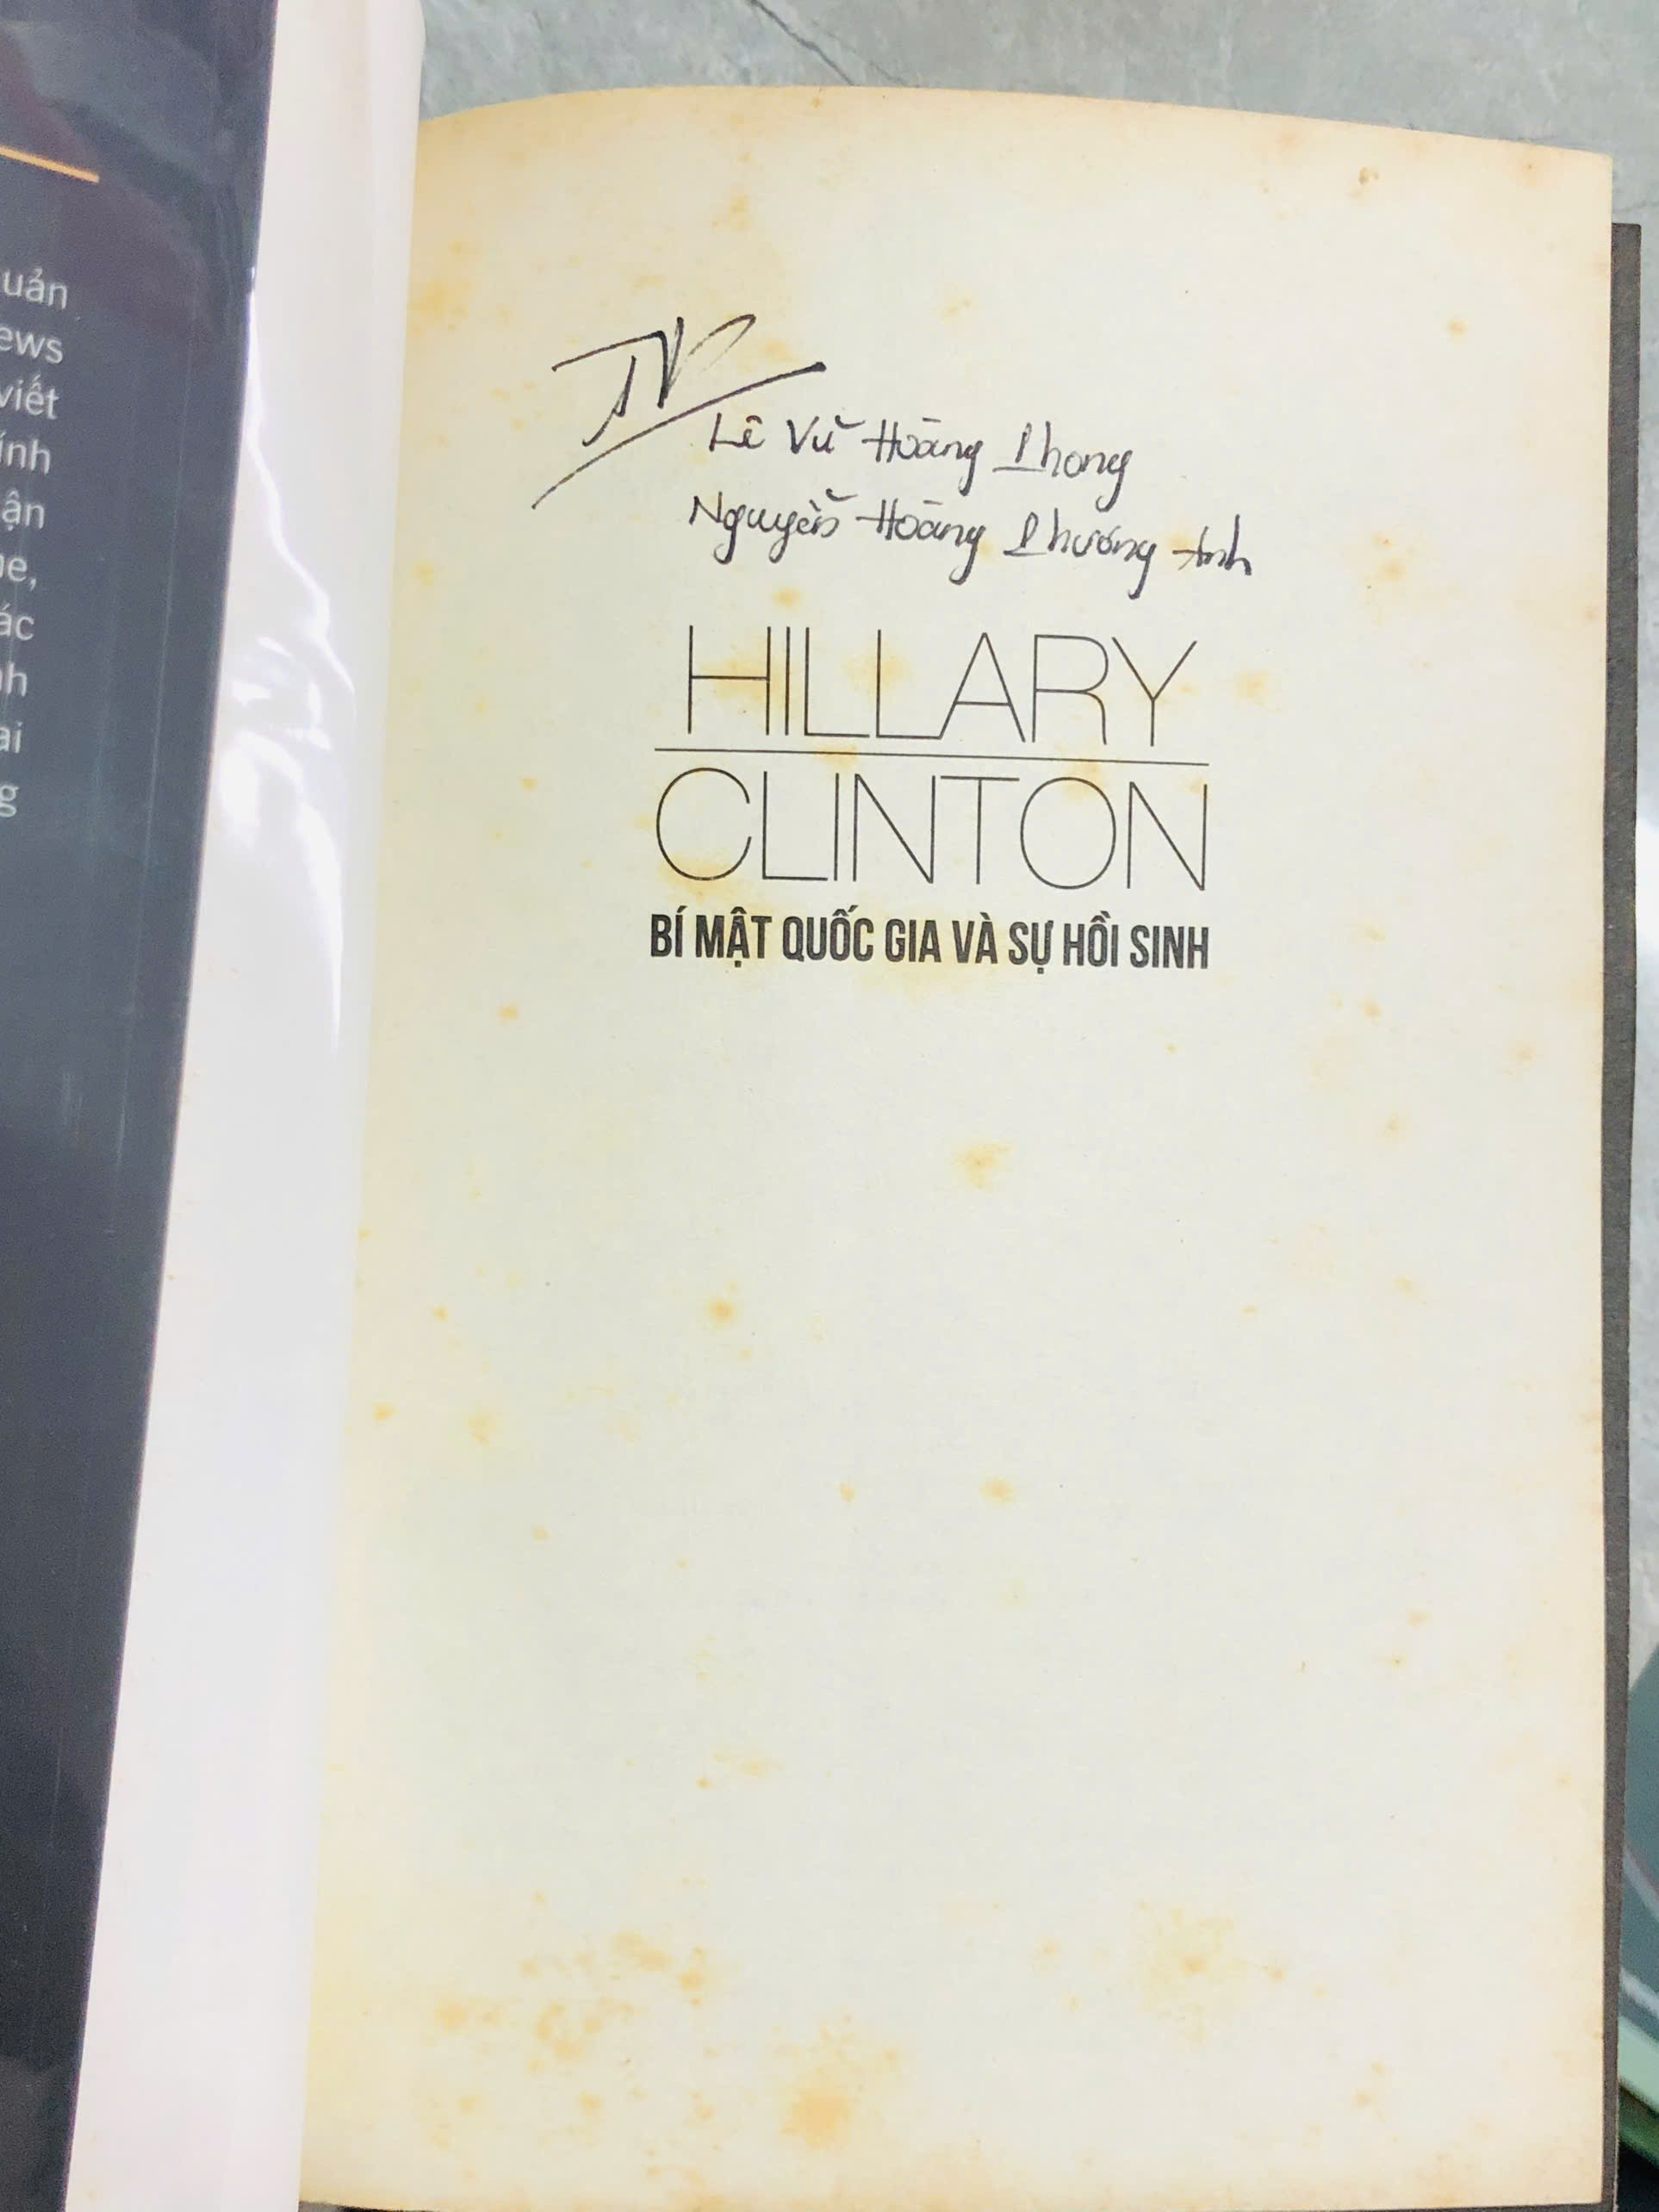 uản
ews
viết
ính
ận
ác
nh
ai
g
Lê Vũ Hoàng Phong
Nguyễn Hoàng Phương Anh
HILLARY
CLINTON
BÍ MẬT QUỐC GIA VÀ SỰ HỒI SINH